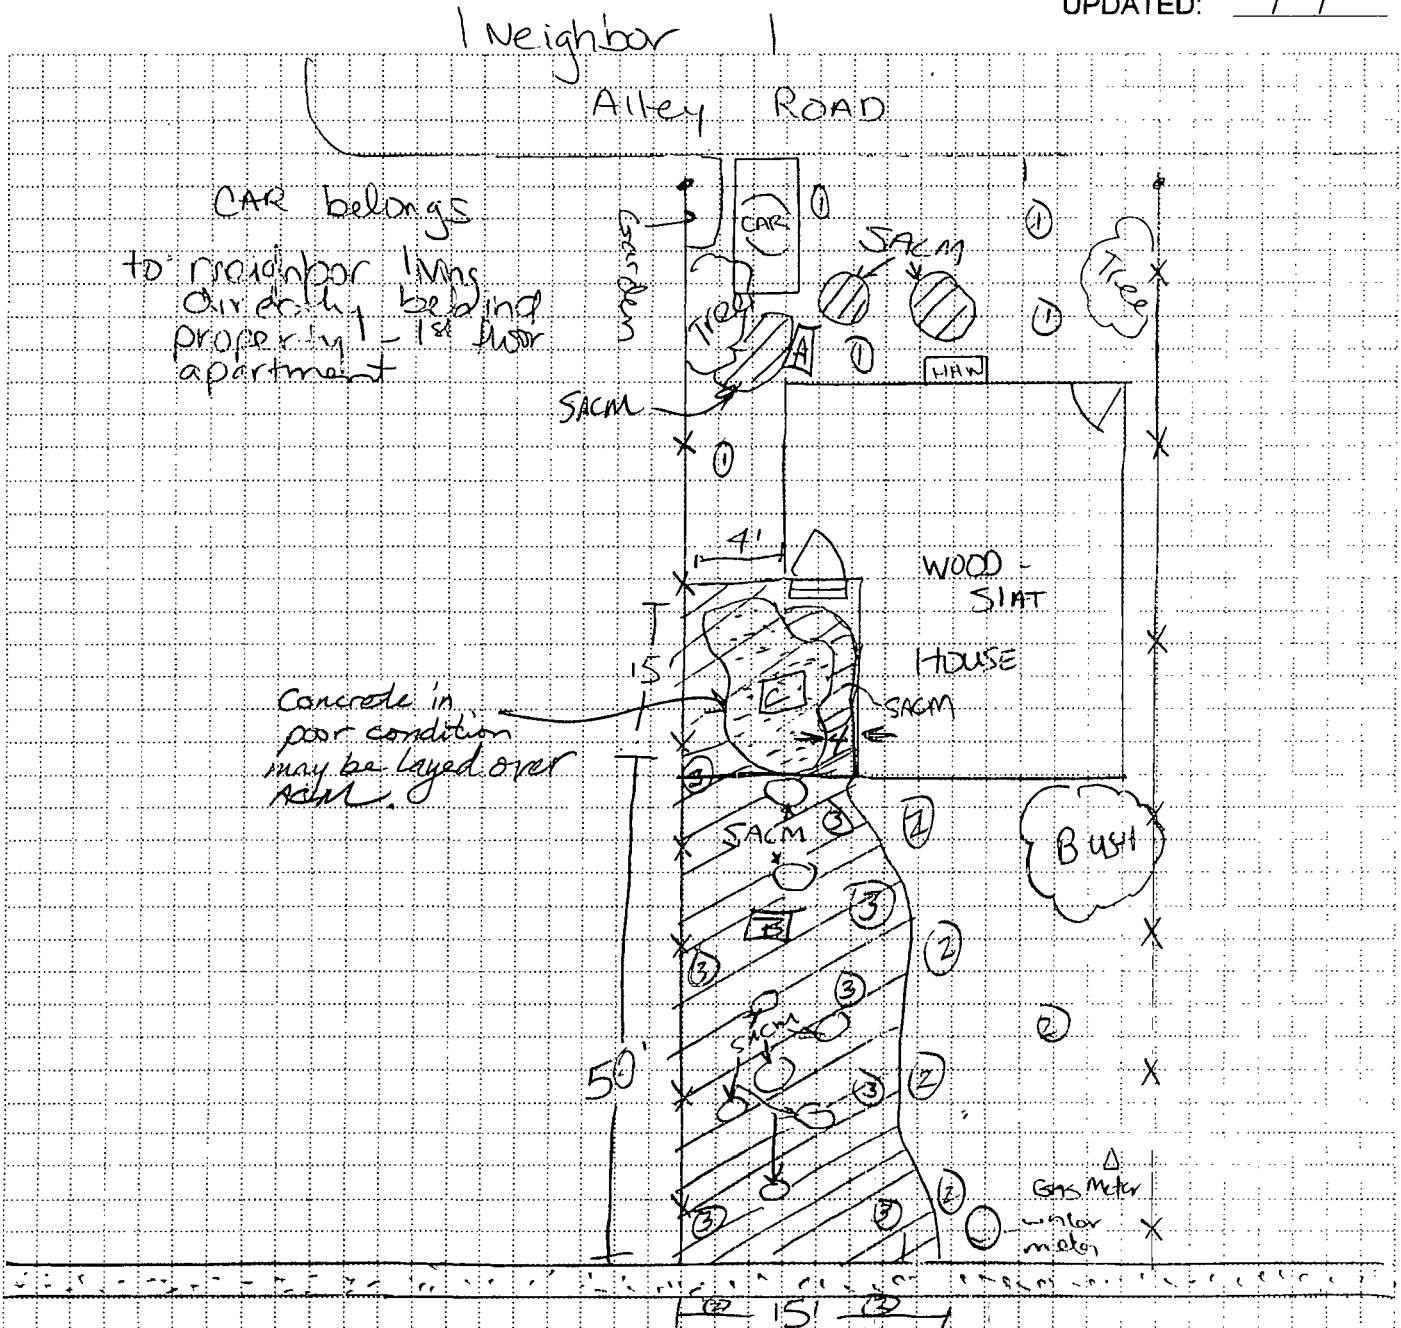 UPDATED: __/__/__
| Neighbor |
Alley ROAD
CAR belongs
to neighbor living
directly behind
property - 1st floor
apartment
Garden
CAR
①
SACM
①
Tree
Tree
A
①
①
HHW
SACM
①
4'
WOOD -
SLAT
HOUSE
15'
C
SACM
4
Concrete in
poor condition
may be layed over
ACM.
③
SACM
③
②
BUSH
③
B
②
③
③
②
SACM
50'
③
②
②
Gas Meter
③
③
water
meter
15'